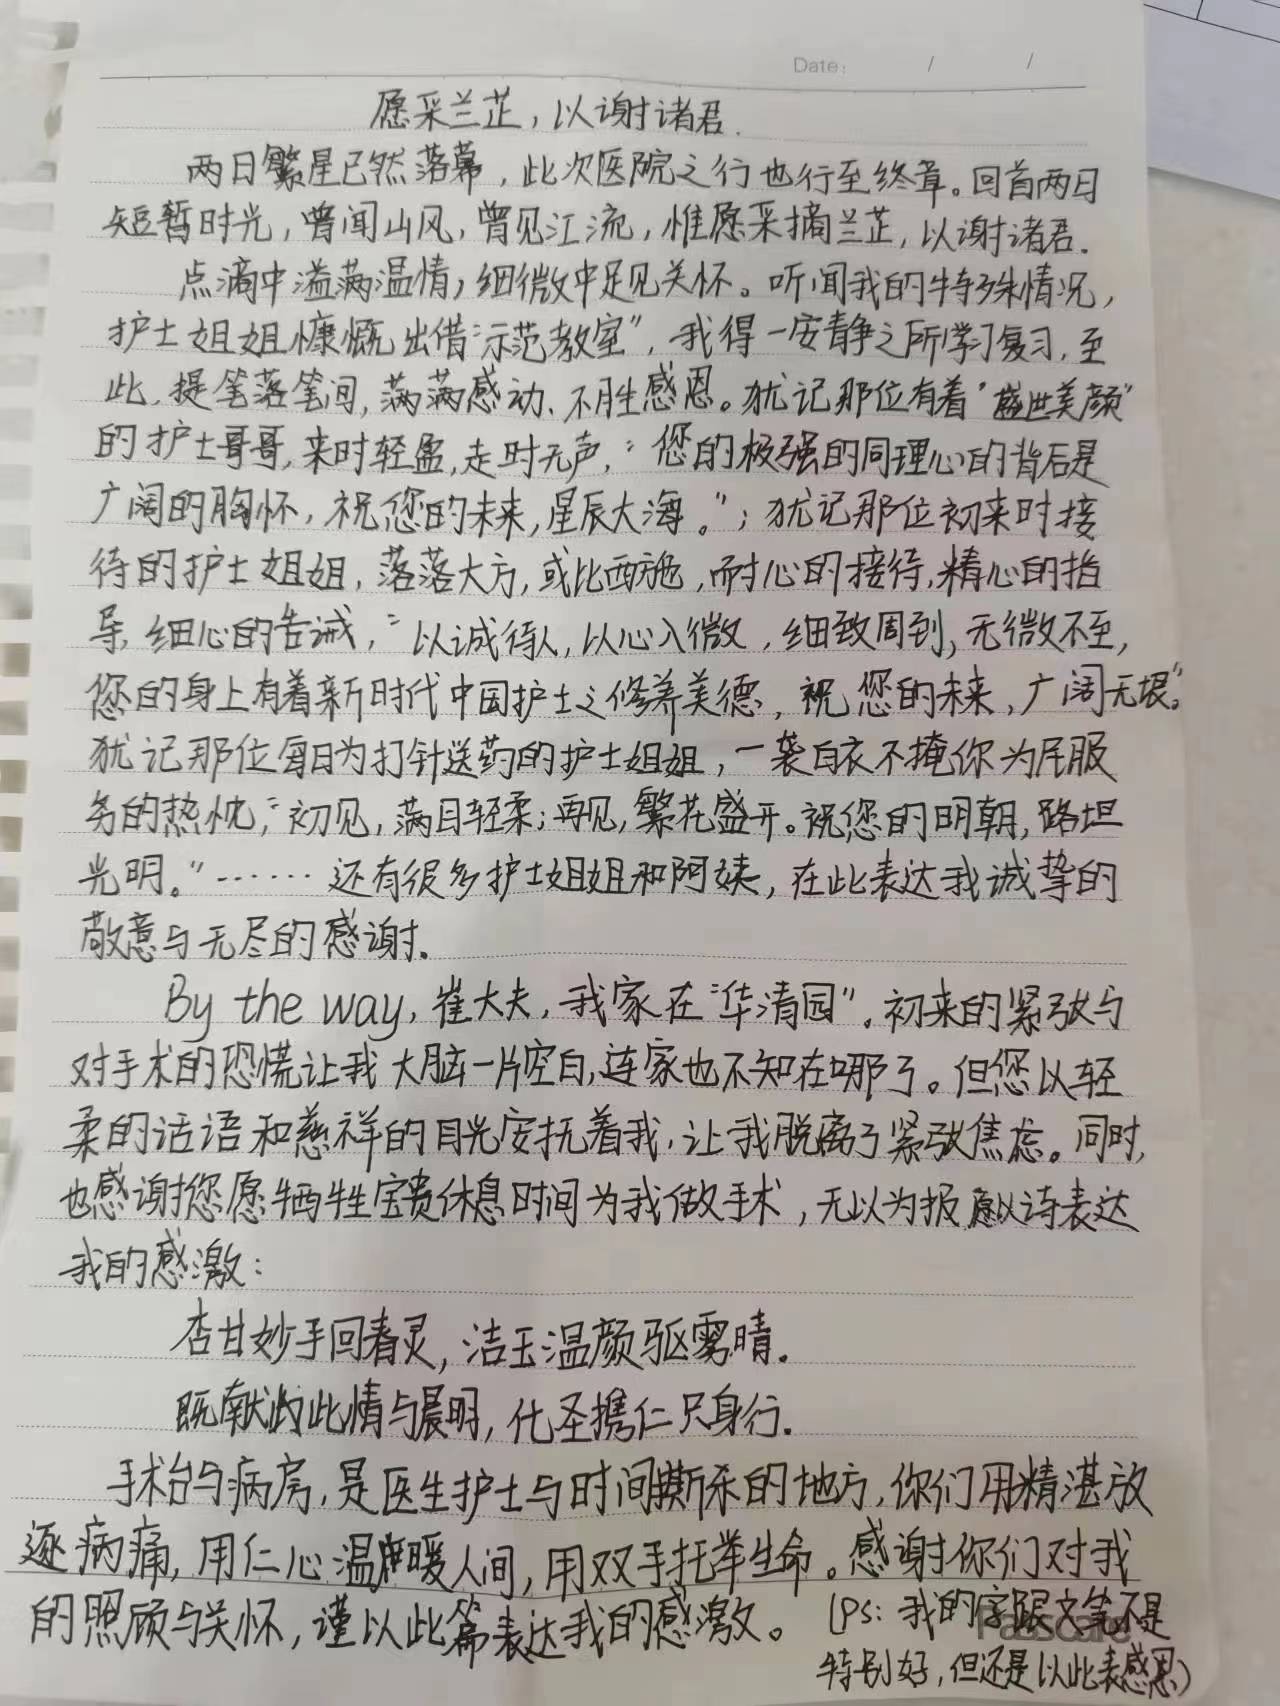 Date: / /
愿采兰芷，以谢诸君.
两日繁星已然落幕，此次医院之行也行至终章。回首两日
短暂时光，曾闻山风，曾见江流，惟愿采摘兰芷，以谢诸君.
点滴中溢满温情，细微中足见关怀。听闻我的特殊情况，
护士姐姐慷慨出借“示范教室”，我得一安静之所学习复习，至
此，提笔落笔间，满满感动、不胜感恩。犹记那位有着“盛世美颜”
的护士哥哥，来时轻盈，走时无声，“您的极强的同理心的背后是
广阔的胸怀，祝您的未来，星辰大海。”；犹记那位初来时接
待的护士姐姐，落落大方，或比西施，耐心的接待，精心的指
导，细心的告诫，“以诚待人，以心入微，细致周到，无微不至，
您的身上有着新时代中国护士之修养美德，祝您的未来，广阔无垠。”
犹记那位每日为打针送药的护士姐姐，一袭白衣不掩你为民服
务的热忱，“初见，满目轻柔；再见，繁花盛开。祝您的明朝，路坦
光明。”……还有很多护士姐姐和阿姨，在此表达我诚挚的
敬意与无尽的感谢.
By the way，崔大夫，我家在“华清园”。初来的紧张与
对手术的恐慌让我大脑一片空白，连家也不知在哪了。但您以轻
柔的话语和慈祥的目光安抚着我，让我脱离了紧张焦虑。同时，
也感谢您愿牺牲宝贵休息时间为我做手术，无以为报，愿以诗表达
我的感激：
杏甘妙手回春灵，洁玉温颜驱雾晴.
既献此情与晨明，化圣携仁只身行.
手术台与病房，是医生护士与时间厮杀的地方，你们用精湛放
逐病痛，用仁心温暖人间，用双手托举生命。感谢你们对我
的照顾与关怀，谨以此篇表达我的感激。（PS：我的字跟文笔不是
特别好，但还是以此表感恩）
Passcare